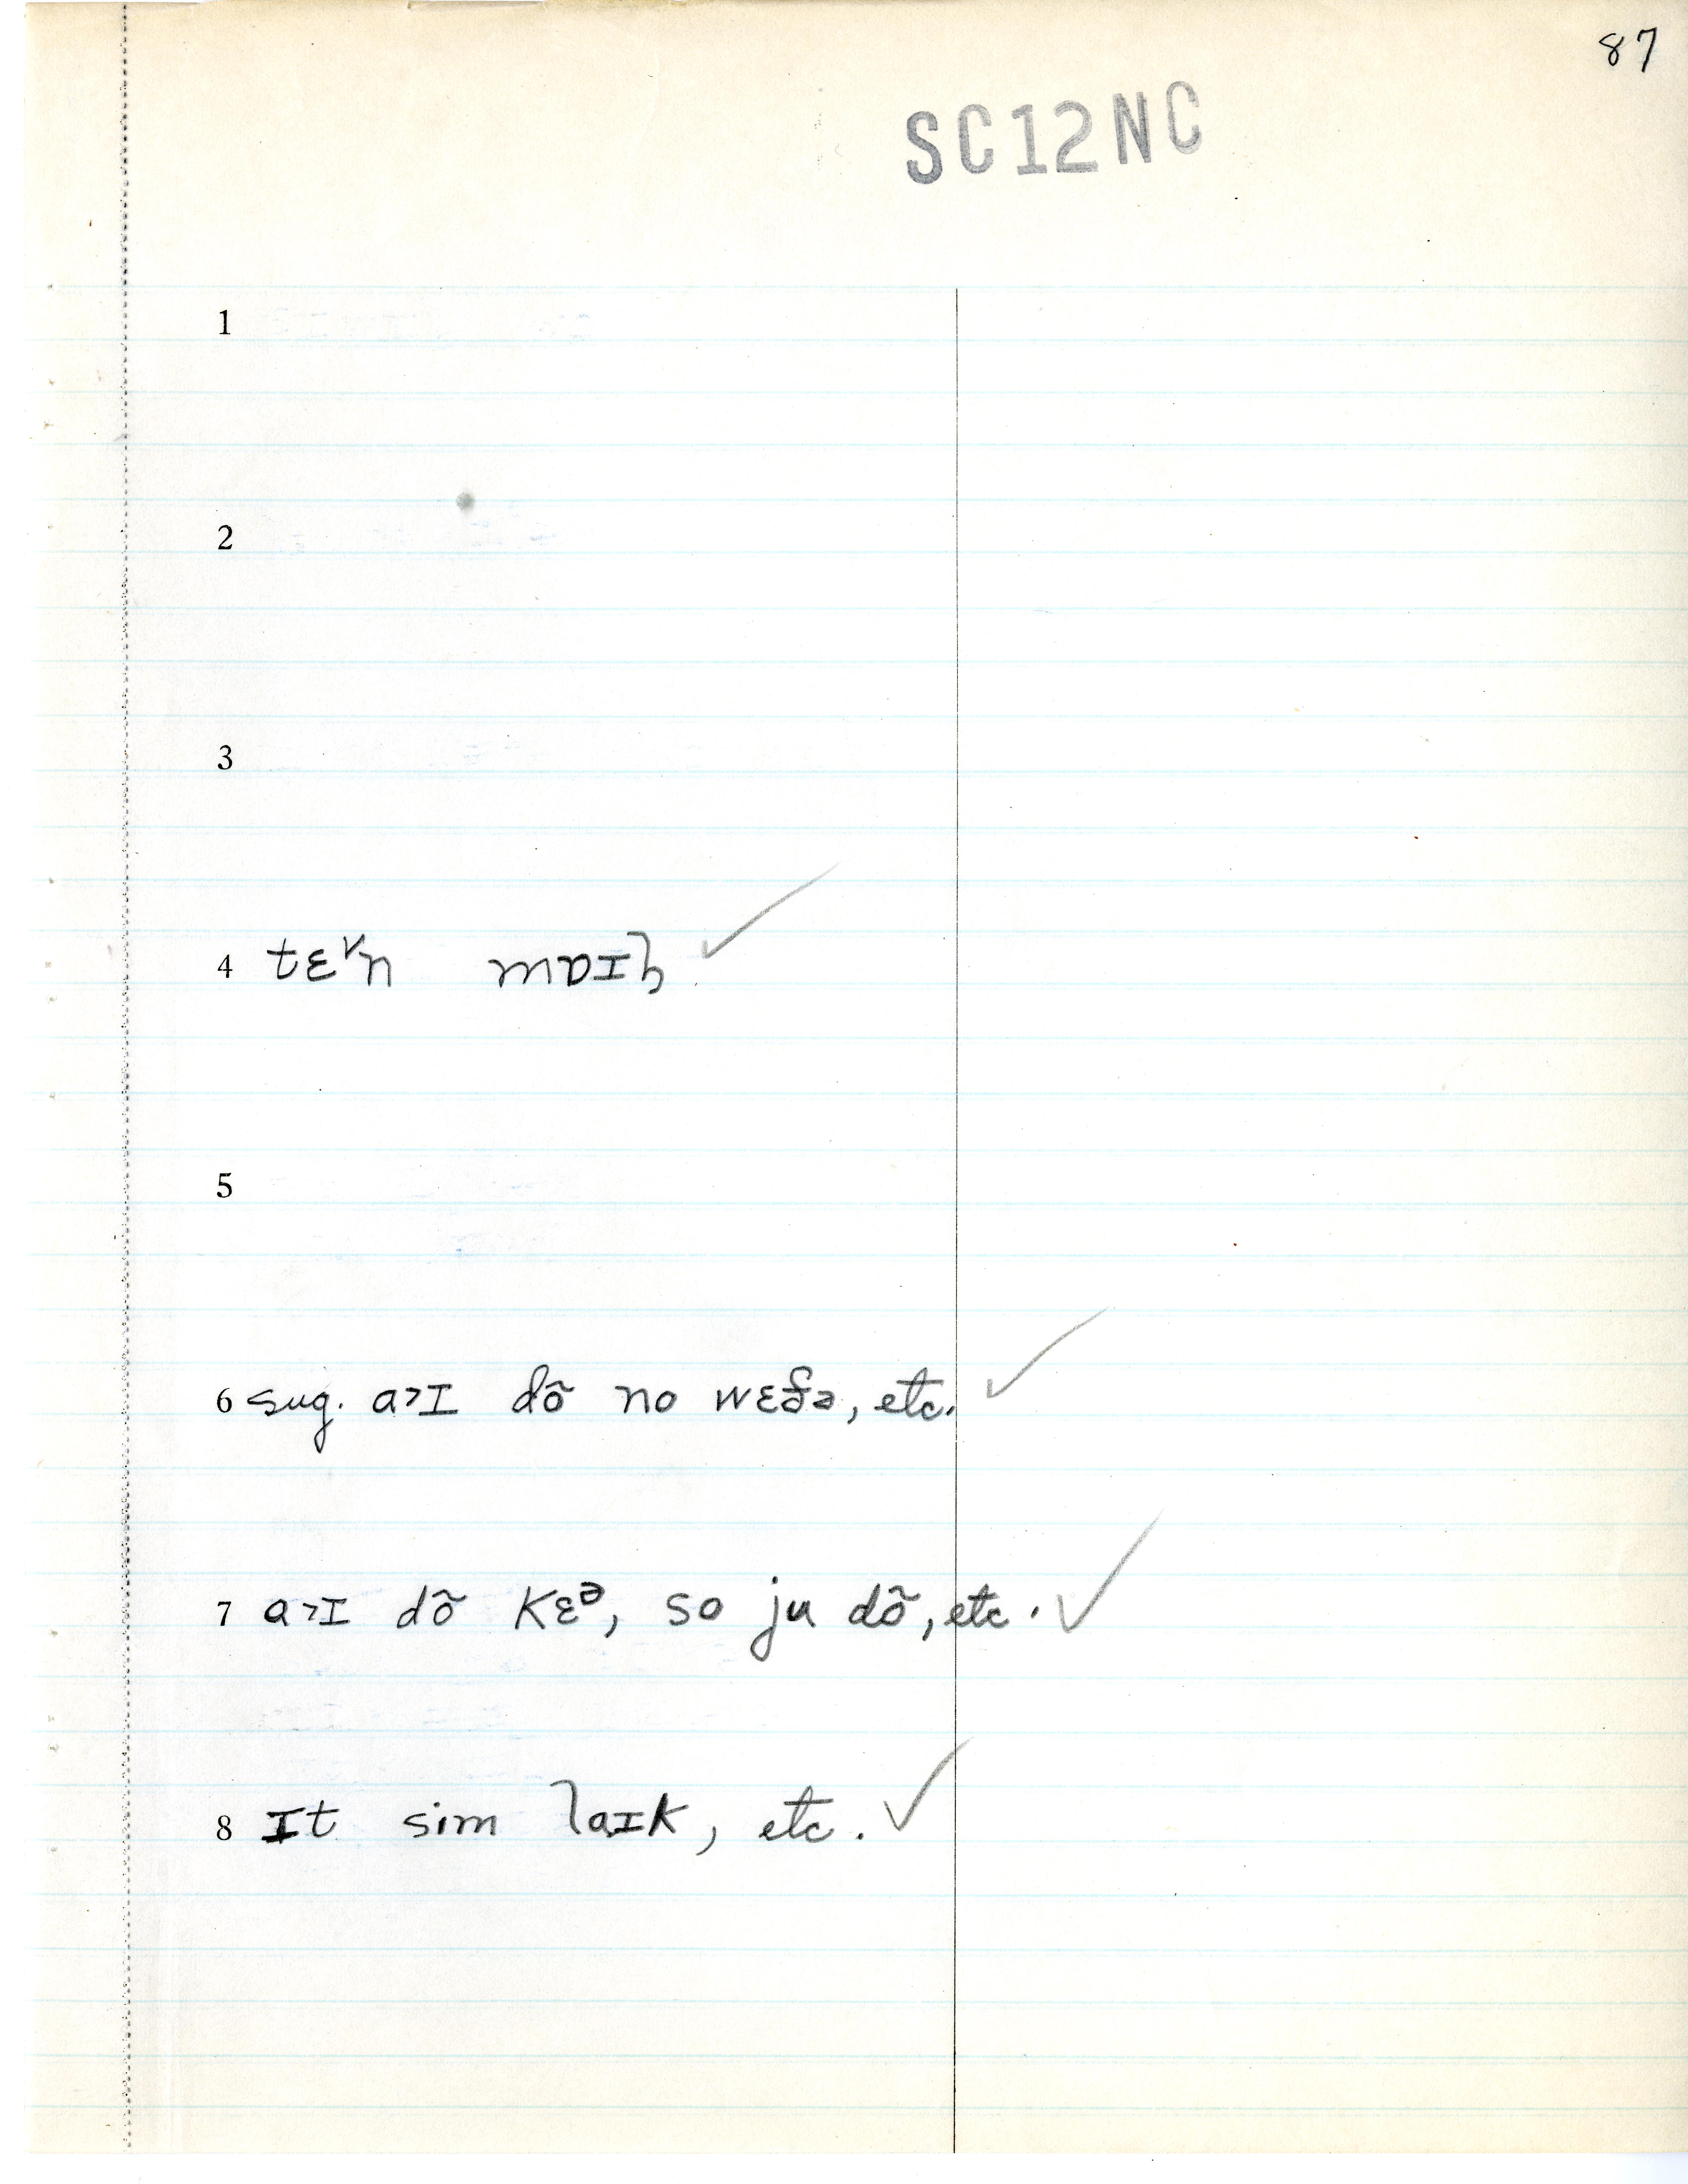 87
SC12NC
1
2
3
4 tɛ˅n mɒɪɫ ✓
5
6 sug. a˃ɪ dõ no wɛðə, etc. ✓
7 a˃ɪ dõ kɛᵊ, so ju dõ, etc. ✓
8 ɪt sim laɪk, etc. ✓